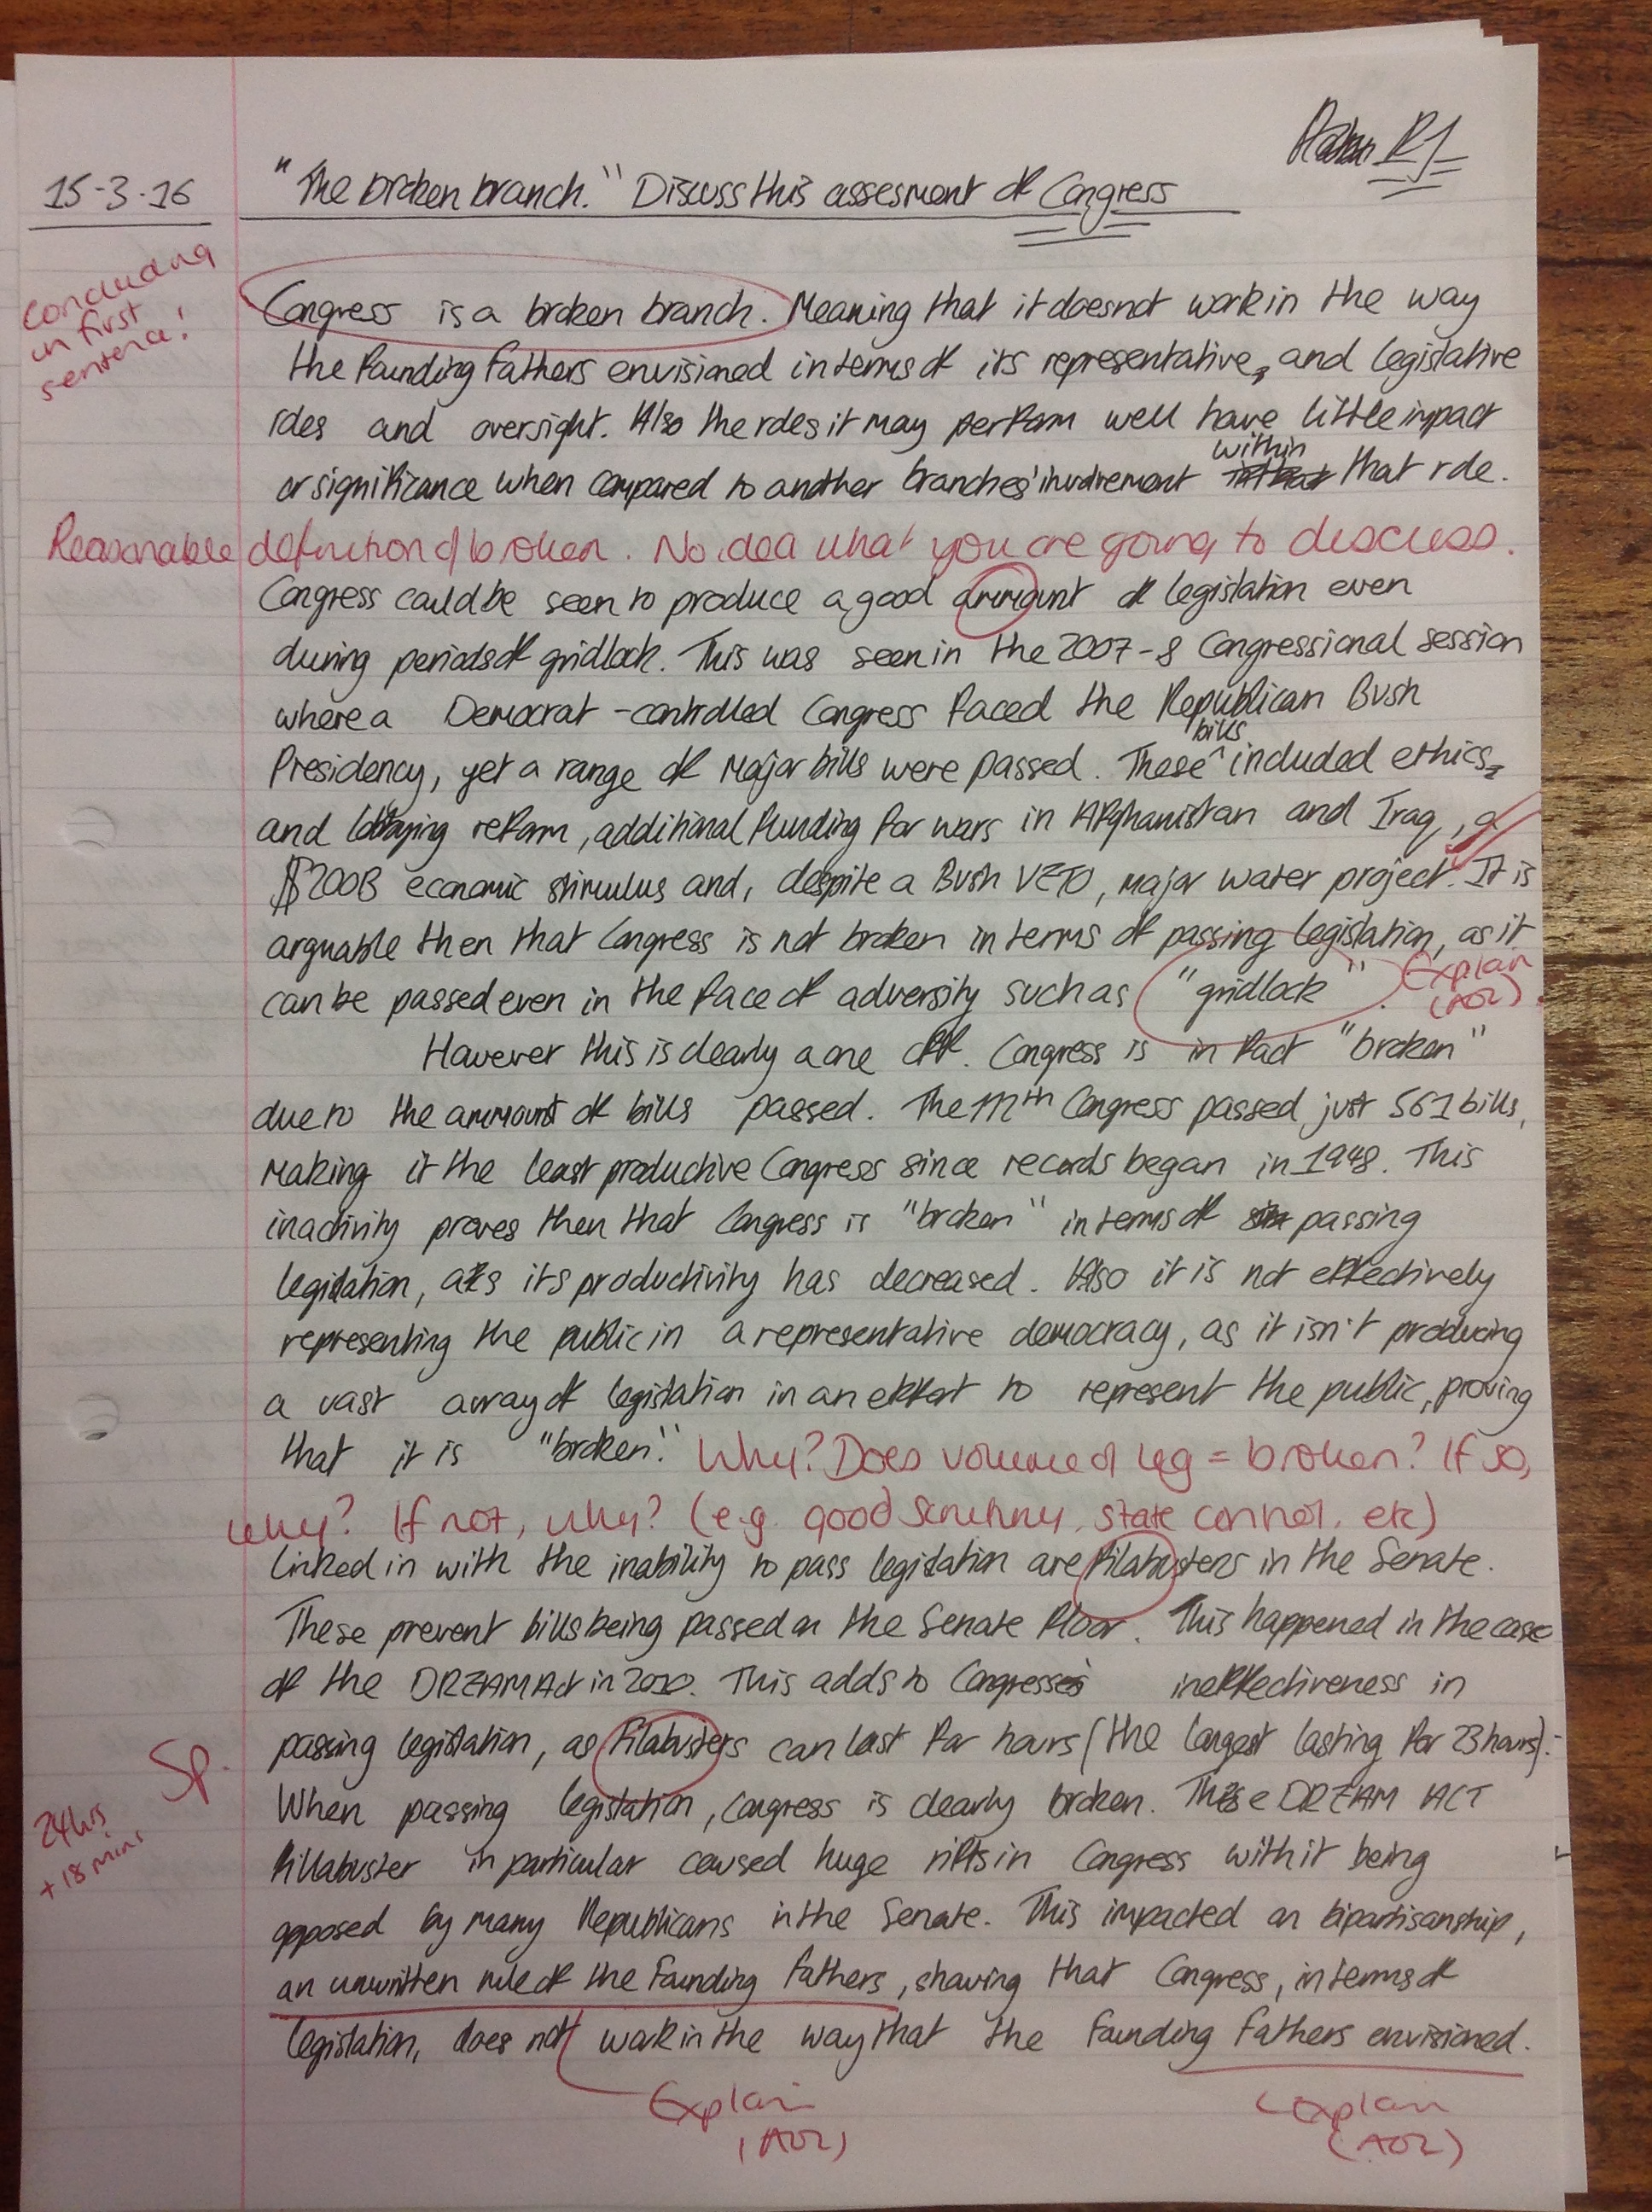 15-3-16
"The broken branch." Discuss this assesment of Congress
Concluding
in first
sentence!
Congress is a broken branch. Meaning that it does not work in the way
the Founding Fathers envisioned in terms of its representative, and legislative
roles and oversight. Also the roles it may perform well have little impact
or significance when compared to another branches' involvement within that role.
Reasonable definition of broken. No idea what you are going to discuss.
Congress could be seen to produce a good ammount of legislation even
during periods of gridlock. This was seen in the 2007-8 Congressional session
where a Democrat-controlled Congress faced the Republican Bush
Presidency, yet a range of major bills were passed. These bills included ethics,
and lobbying reform, additional funding for wars in Afghanistan and Iraq, a
$200B economic stimulus and, despite a Bush VETO, major water project. It is
arguable then that Congress is not broken in terms of passing legislation, as it
can be passed even in the face of adversity such as "gridlock".
Explain
(AO2)
However this is clearly a one off. Congress is in fact "broken"
due to the ammount of bills passed. The 112th Congress passed just 561 bills,
making it the least productive Congress since records began in 1948. This
inactivity proves then that Congress is "broken" in terms of passing
legislation, as its productivity has decreased. Also it is not effectively
representing the public in a representative democracy, as it isn't producing
a vast array of legislation in an effort to represent the public, proving
that it is "broken". Why? Does volume of leg = broken? If so,
why? If not, why? (e.g. good scrutiny, state control, etc)
Linked in with the inability to pass legislation are filabusters in the Senate.
These prevent bills being passed on the Senate floor. This happened in the case
of the DREAM Act in 2010. This adds to Congress's ineffectiveness in
passing legislation, as filabusters can last for hours (the largest lasting for 23 hours).
Sp.
24hrs
+18 mins
When passing legislation, Congress is clearly broken. The DREAM ACT
fillabuster in particular caused huge rifts in Congress with it being
opposed by many Republicans in the Senate. This impacted on bipartisanship,
an unwritten rule of the Founding Fathers, showing that Congress, in terms of
legislation, does not work in the way that the Founding Fathers envisioned.
Explain
(AO2)
Explain
(AO2)